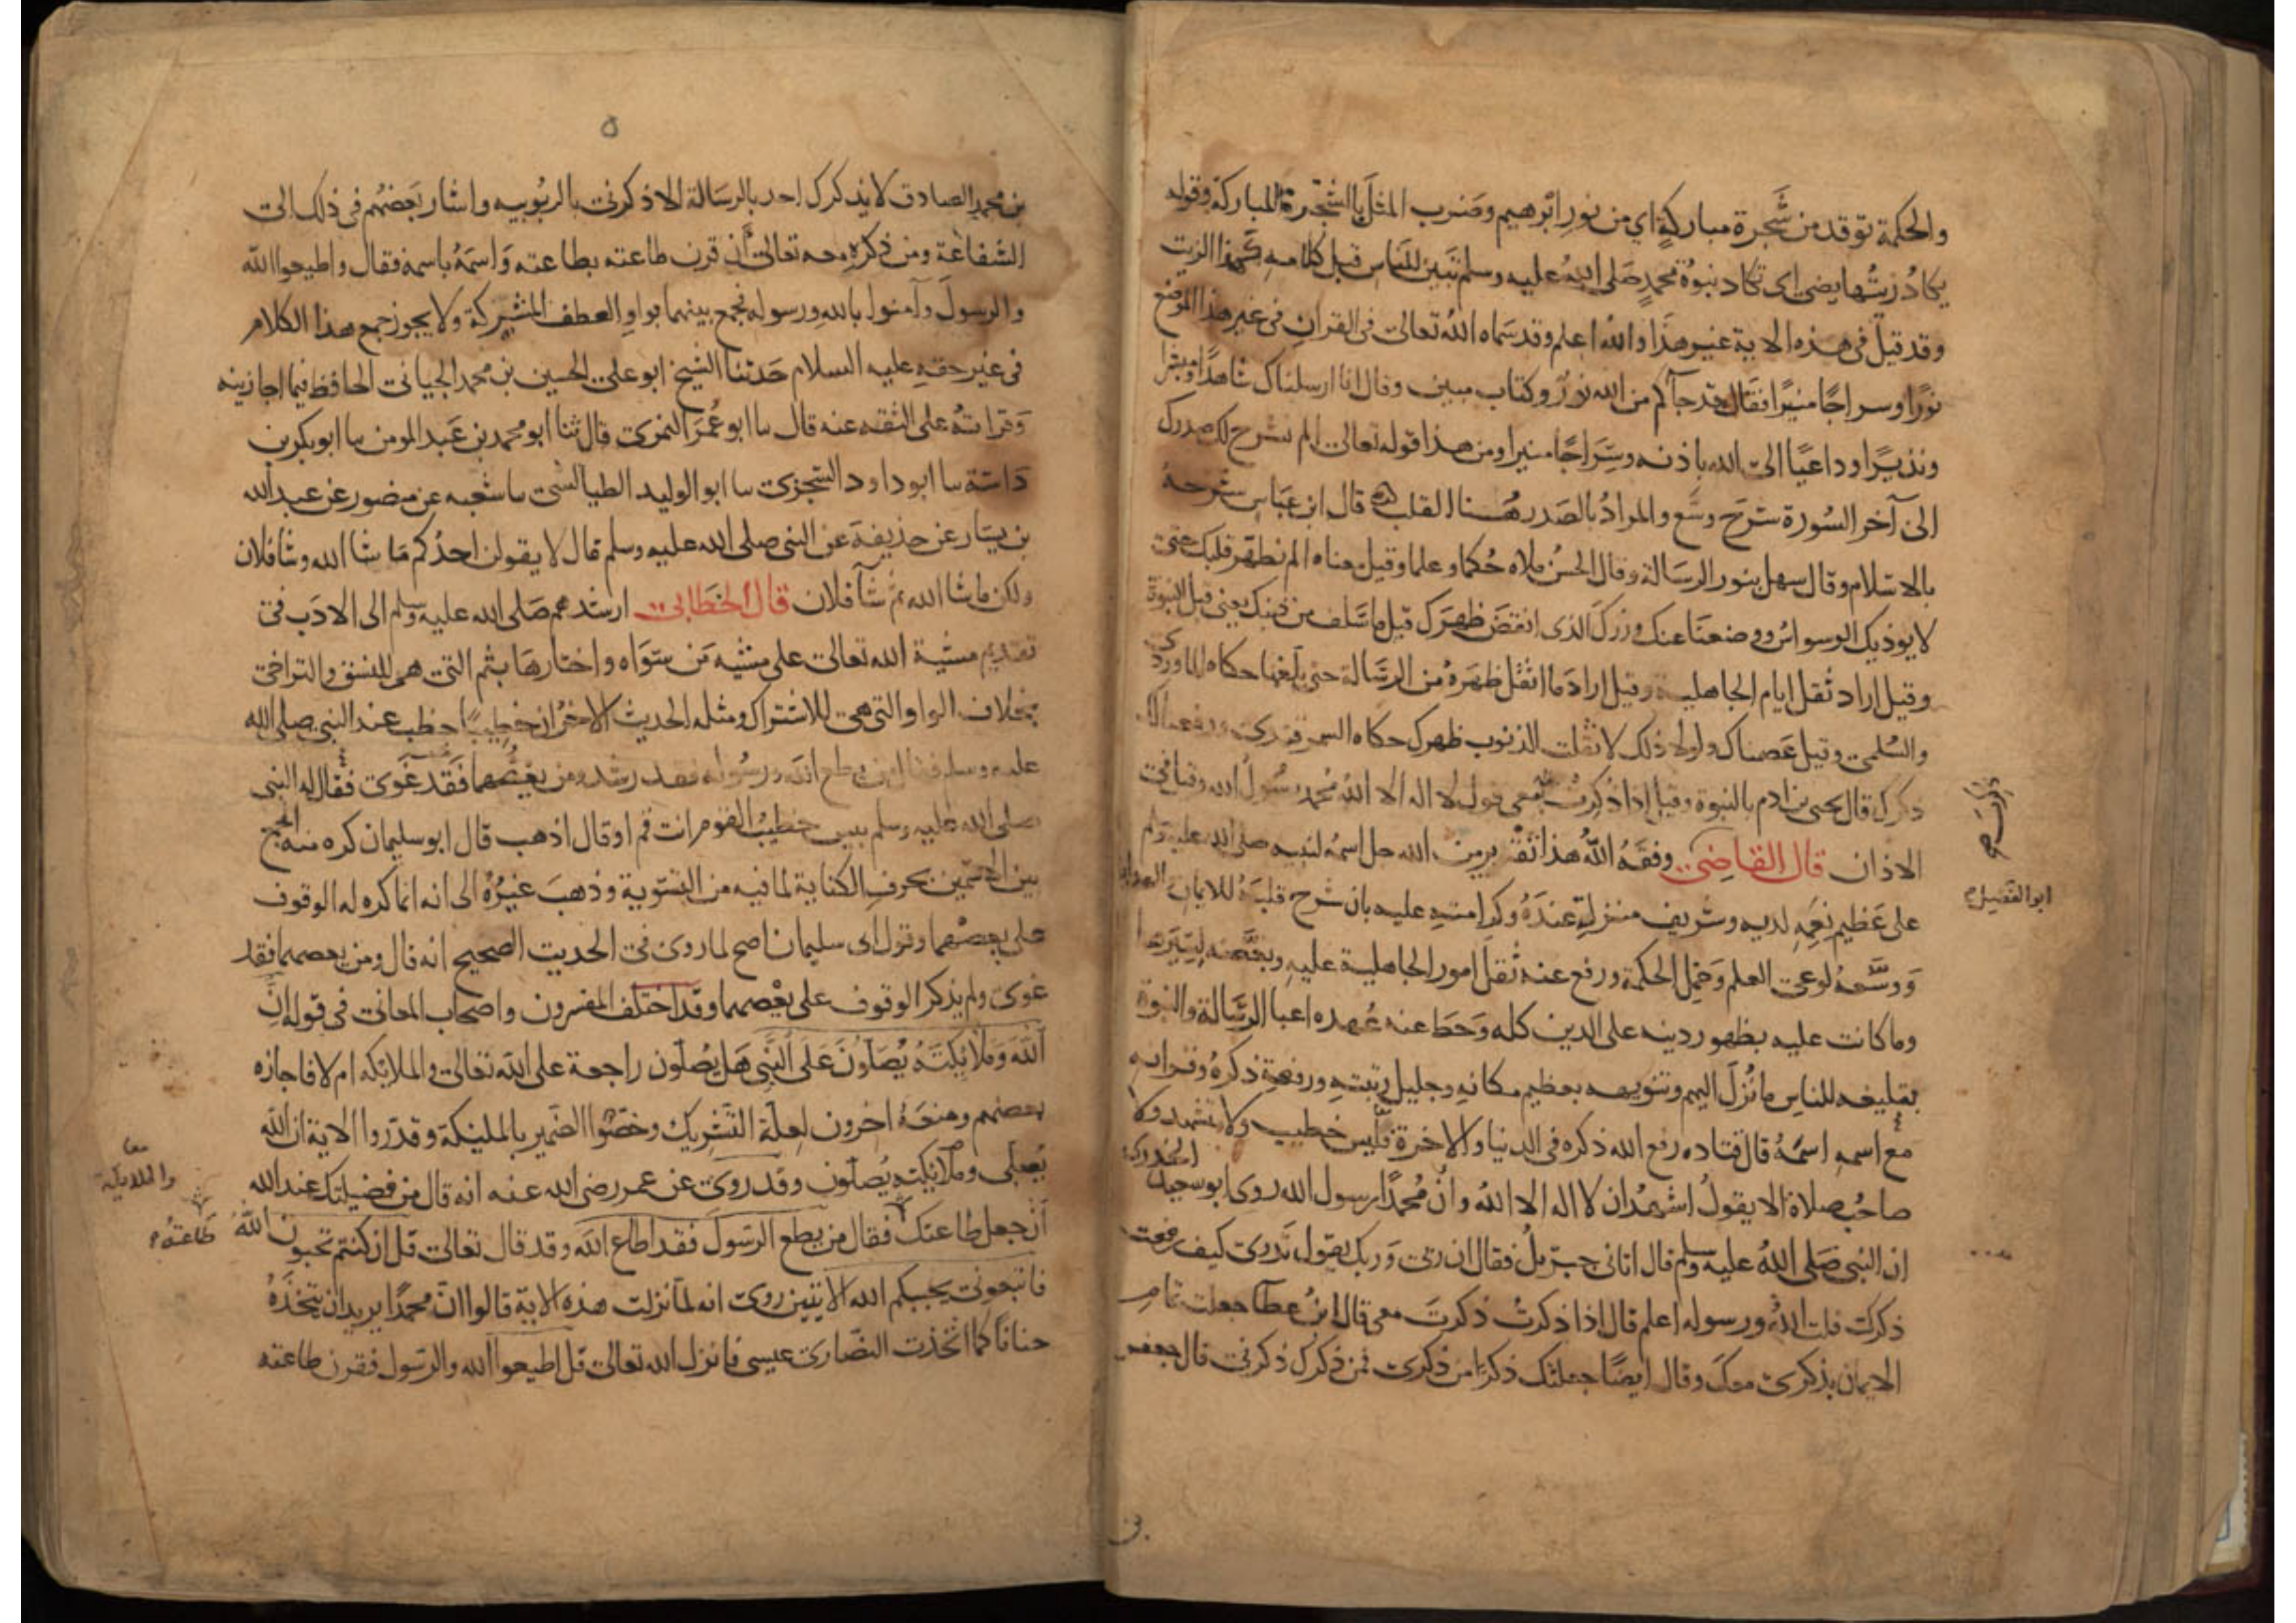 والحكمة توقد من شجرة مباركة اي من نور ابرهيم وضرب المثل بالشجرة المباركة وقوله
يكاد زيتها يضئ اي تكاد نبوة محمد صلى الله عليه وسلم تبين للناس قبل كلامه كهذا الزيت
وقد قيل فى هذه الاية غير هذا والله اعلم وقد سماه الله تعالى فى القران فى غير هذا الموضع
نورا وسراجا منيرا فقال قد جآكم من الله نور وكتاب مبين وقال انا ارسلناك شاهدا ومبشرا
ونذيرا وداعيا الى الله باذنه وسراجا منيرا ومن هذا قوله تعالى الم نشرح لك صدرك
الى آخر السورة شرح وسع والمراد بالصدر هنا القلب قال ابن عباس شرحه
بالاسلام وقال سهل بنور الرسالة وقال الحسن ملاه حكما وعلما وقيل معناه الم نطهر قلبك حتى
لا يوذيك الوسواس ووضعنا عنك وزرك الذى انقض ظهرك قيل ما سلف من ذنبك يعنى قبل النبوة
وقيل اراد ثقل ايام الجاهلية وقيل اراد ما اثقل ظهره من الرسالة حتى بلغها حكاه الماوردى
والسلمى وقيل عصمناك ولولا ذلك لاثقلت الذنوب ظهرك حكاه السمرقندى ورفعنا لك
ذكرك قال يحيى بن ادم بالنبوة وقيل اذا ذكرت معى قول لا اله الا الله محمد رسول الله وقيل فى
الاذان قال القاضى وفقه الله هذا تقرير من الله جل اسمه لنبيه صلى الله عليه وسلم
ابو الفضل
على عظيم نعمه لديه وشريف منزلته عنده وكرامته عليه بان شرح قلبه للايمان
ووسعه لوعى العلم وحمل الحكمة ورفع عنه ثقل امور الجاهلية عليه وبغضه لسيرها
وما كانت عليه بظهور دينه على الدين كله وحط عنه عهدة اعبا الرسالة والنبوة
بتبليغه للناس ما نزل اليهم وتنويهه بعظيم مكانه وجليل رتبته ورفعة ذكره وقرانه
مع اسمه اسمه قال قتاده رفع الله ذكره فى الدنيا والاخرة فليس خطيب ولا متشهد ولا
صاحب صلاة الا يقول اشهد ان لا اله الا الله وان محمدا رسول الله روى ابو سعيد الخدرى
ان النبى صلى الله عليه وسلم قال اتانى جبريل فقال ان ربى وربك يقول تدرى كيف رفعت
ذكرك قلت الله ورسوله اعلم قال اذا ذكرت ذكرت معى قال ابن عطآ جعلت تمام
الايمان بذكرى معك وقال ايضا جعلتك ذكرا من ذكرى فمن ذكرك ذكرنى قال جعفر
٥
بن محمد الصادق لا يذكرك احد بالرسالة الا ذكرنى بالربوبيه واشار بعضهم فى ذلك الى
الشفاعة ومن ذكره معه تعالى ان قرن طاعته بطاعته واسمه باسمه فقال واطيعوا الله
والرسول وآمنوا بالله ورسوله فجمع بينهما بواو العطف المشركة ولا يجوز جمع هذا الكلام
فى غير حقه عليه السلام حدثنا الشيخ ابو على الحسين بن محمد الجيانى الحافظ فيما اجازنيه
وقراته على الثقه عنه قال نا ابو عمر النمرى قال ثنا ابو محمد بن عبد المومن نا ابو بكر بن
داسة نا ابو داود السجزى نا ابو الوليد الطيالسى نا شعبه عن منصور عن عبد الله
بن يسار عن حذيفة عن النبى صلى الله عليه وسلم قال لا يقولن احدكم ما شا الله وشا فلان
ولكن ما شا الله ثم شآ فلان قال الخطابى ارشدهم صلى الله عليه وسلم الى الادب فى
تقديم مشية الله تعالى على مشيه من سواه واختارها بثم التى هى للنسق والتراخى
بخلاف الواو التى هى للاشتراك ومثله الحديث الاخر ان خطيبا خطب عند النبى صلى الله
عليه وسلم فقال من يطع الله ورسوله فقد رشد ومن يعصهما فقد غوى فقال له النبى
صلى الله عليه وسلم بيس خطيب القوم انت قم او قال اذهب قال ابو سليمان كره منه الجمع
بين الاسمين بحرف الكناية لما فيه من التسوية وذهب غيره الى انه انما كره له الوقوف
على يعصهما وقول ابى سليمان اصح لما روى فى الحديث الصحيح انه قال ومن يعصهما فقد
غوى ولم يذكر الوقوف على يعصهما وقد اختلف المفسرون واصحاب المعانى فى قوله ان
الله وملائكته يصلون على النبى هل يصلون راجعة على الله تعالى والملائكه ام لا فاجازه
بعضهم ومنعه اخرون لعلة التشريك وخصوا الضمير بالمليكة وقدروا الاية ان الله
معا
والملايكة
يصلى وملائكته يصلون وقد روى عن عمر رضى الله عنه انه قال من فضيلتك عند الله
ان جعل طاعتك فقال من يطع الرسول فقد اطاع الله وقد قال تعالى قل ان كنتم تحبون الله
طاعته
فاتبعونى يحببكم الله الايتين روى انه لما نزلت هذه الاية قالوا ان محمدا يريد ان نتخذه
حنانا كما اتخذت النصارى عيسى فانزل الله تعالى قل اطيعوا الله والرسول فقرن طاعته